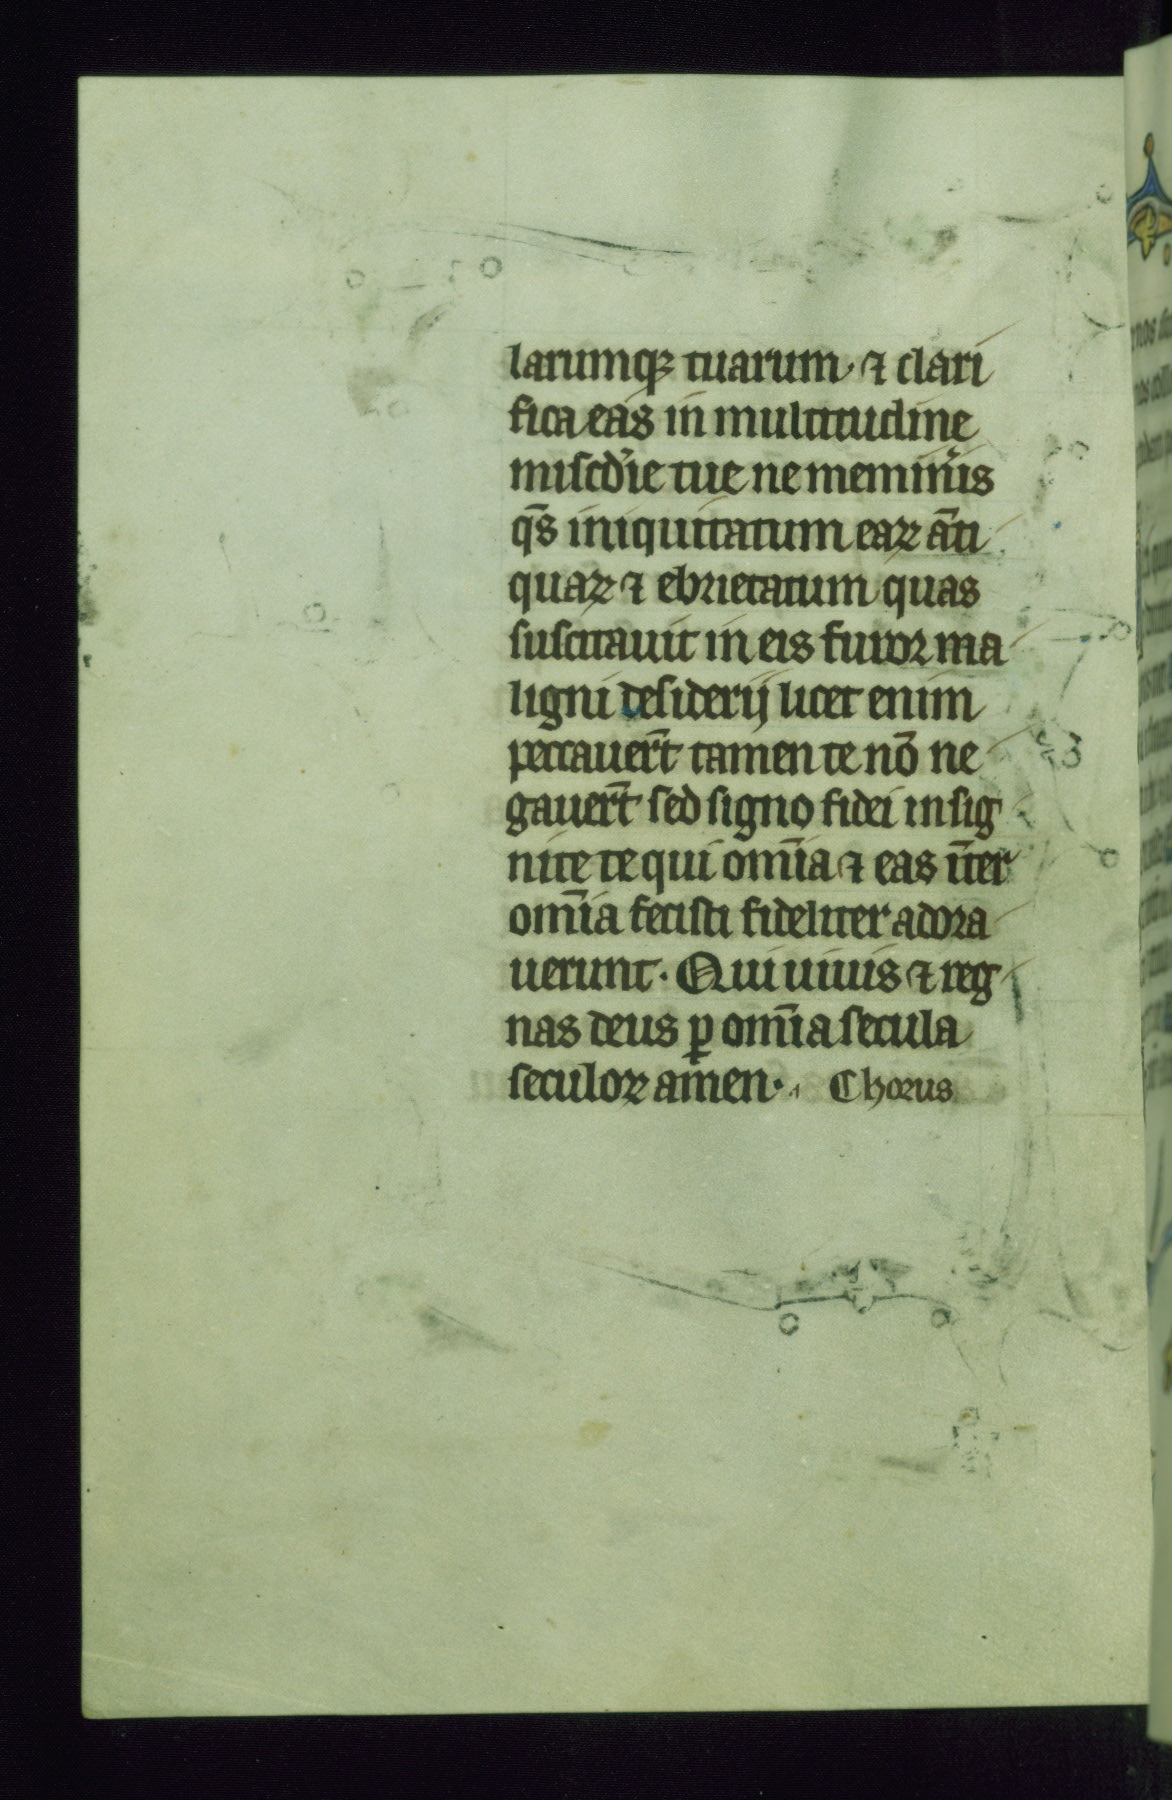 larumqꝫ tuarum· ⁊ clari
fica eas in multitudine
miſcd'ie tue ne memin̾is
q̄s iniquitatum eaꝝ āti
quaꝝ ⁊ ebrietatum quas
ſuſcitauit in eis furor ma
ligni deſiderij licet enim
peccauer̄t tamen te nō ne
gauer̄t ſed ſigno fidei inſig
nite te qui om̄ia ⁊ eas īter
om̄ia feciſti fideliter adora
uerunt· Qui uiuis ⁊ reg
nas deus ꝑ om̄ia ſecula
ſeculoꝝ amen· Chorus